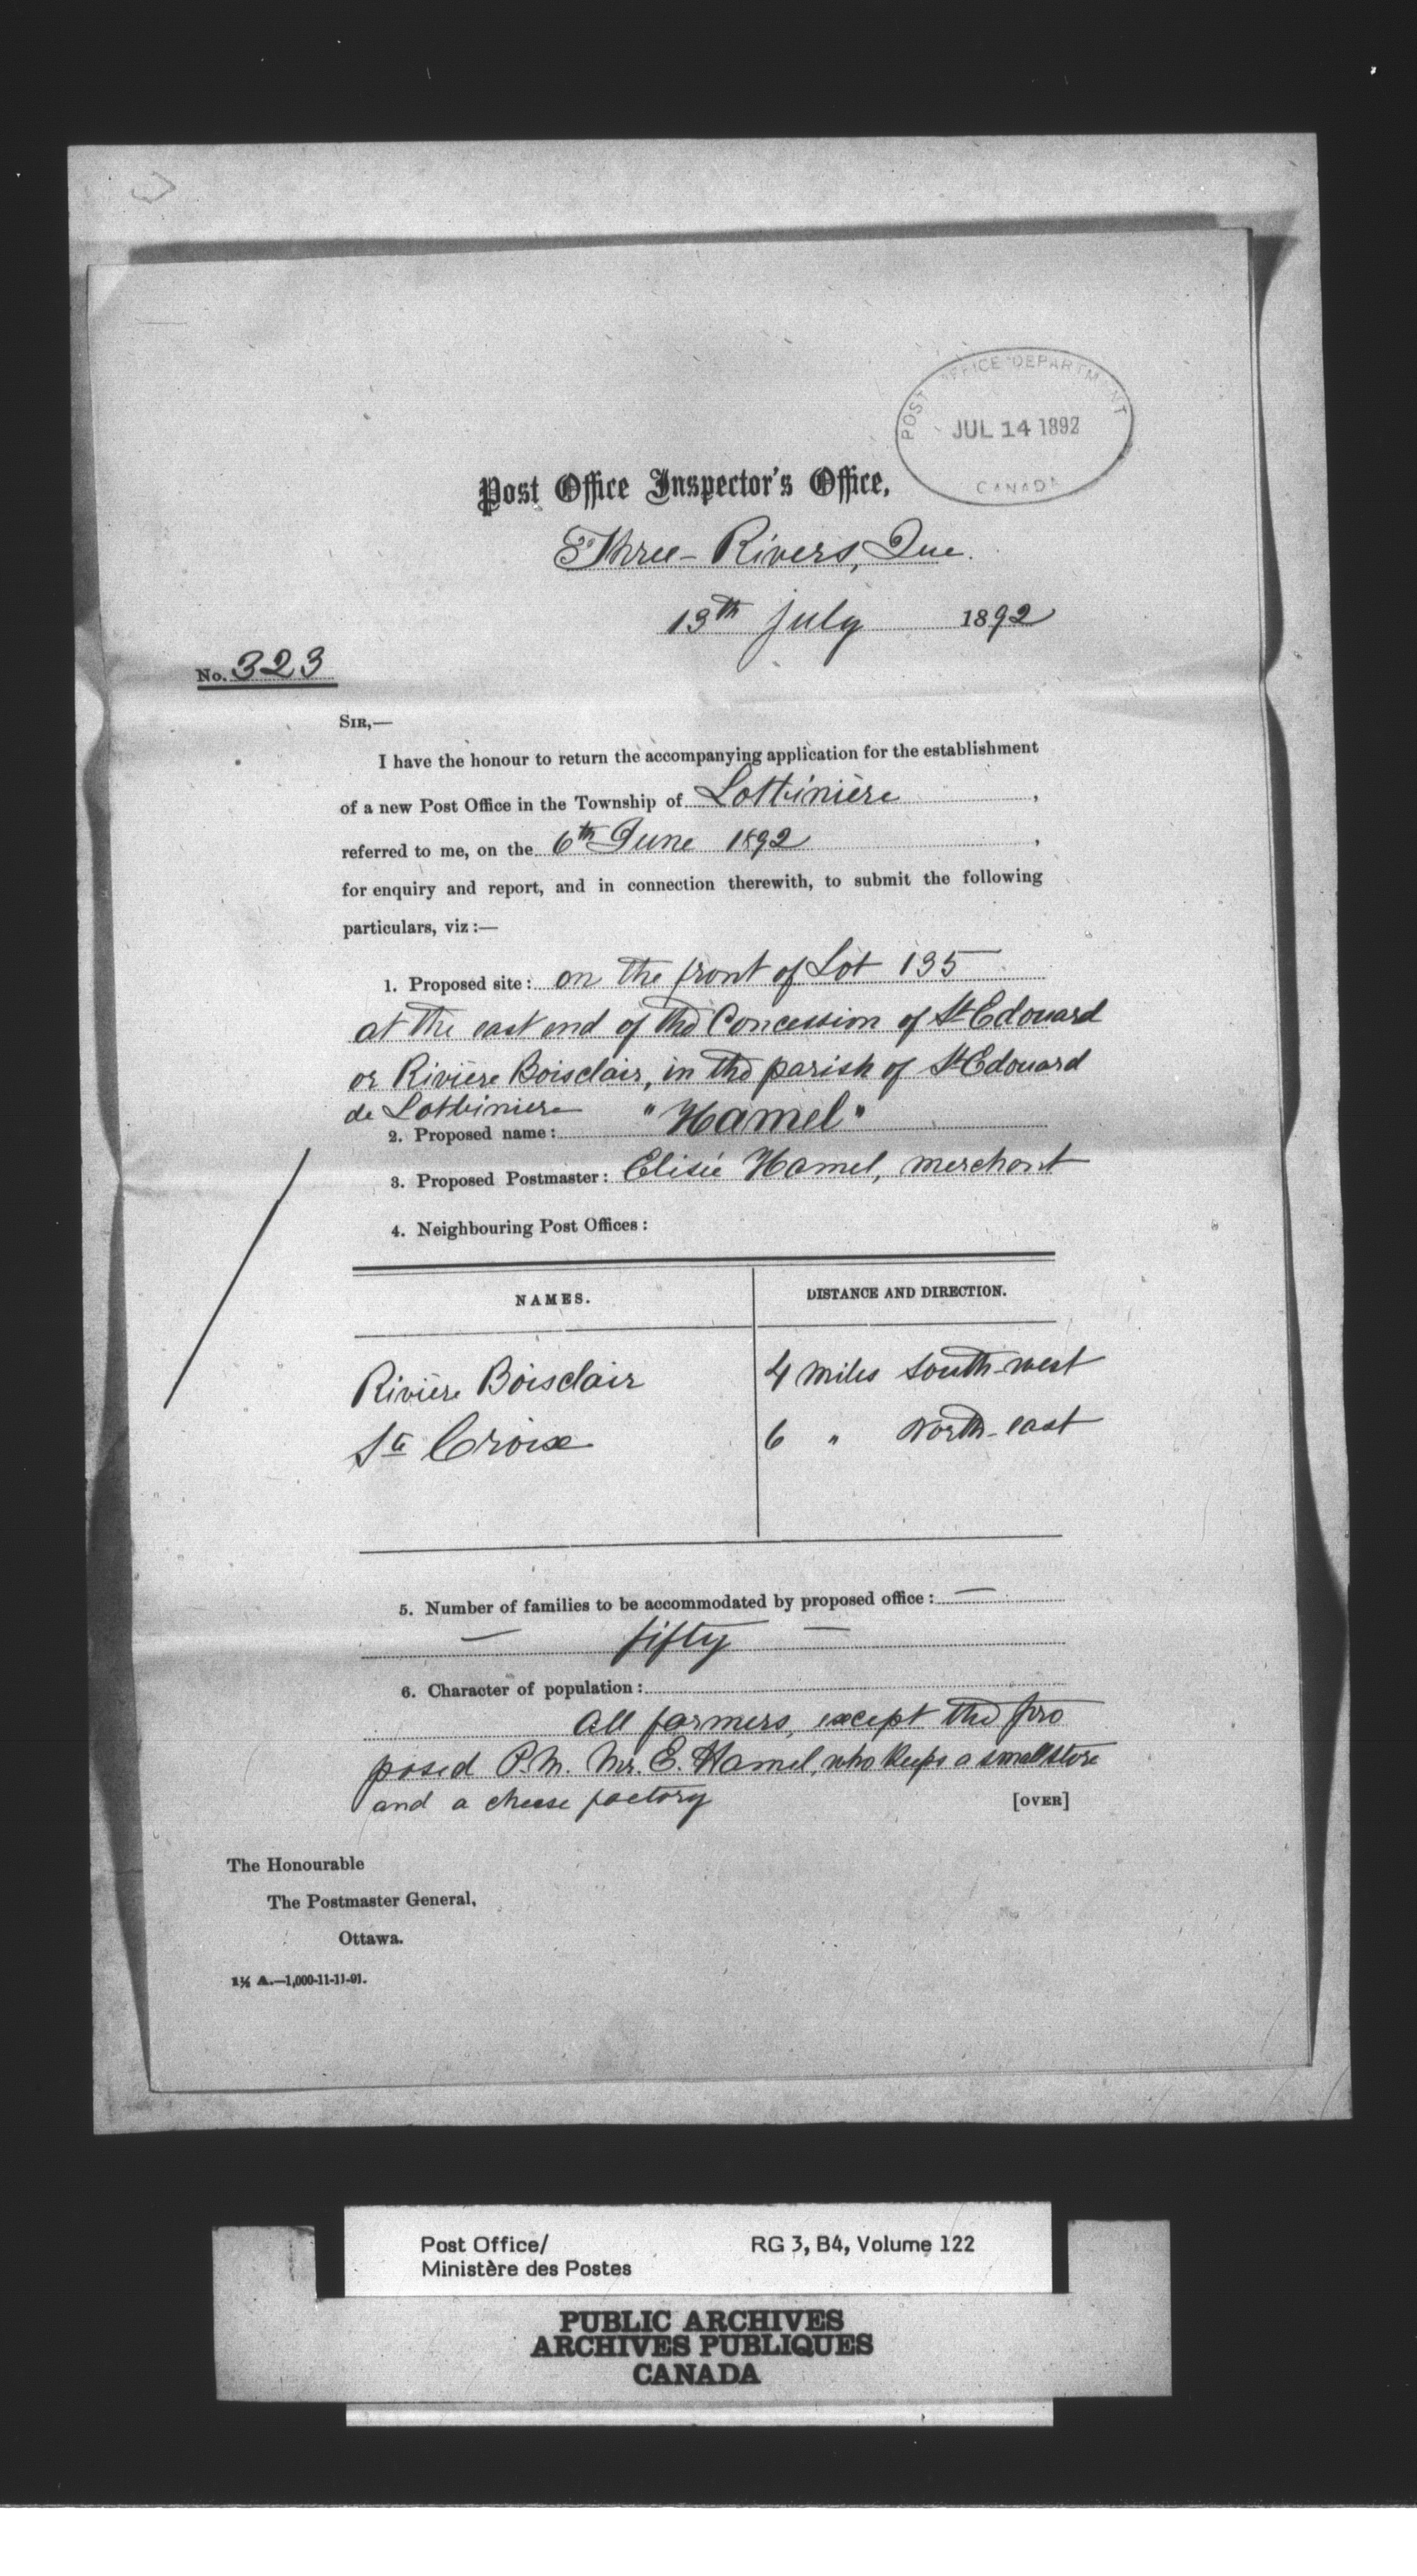 POST OFFICE DEPARTMENT
JUL 14 1892
CANADA
Post Office Inspector's Office,
Three-Rivers, Que.
13th July 1892
No. 323
SIR,—
I have the honour to return the accompanying application for the establishment
of a new Post Office in the Township of Lotbinière,
referred to me, on the 6th June 1892,
for enquiry and report, and in connection therewith, to submit the following
particulars, viz:—
1. Proposed site: on the front of Lot 135
at the east end of the Concession of St Edouard
or Rivière Boisclair, in the parish of St Edouard
de Lotbiniere
2. Proposed name: "Hamel"
3. Proposed Postmaster: Elisée Hamel, merchant
4. Neighbouring Post Offices:
NAMES. DISTANCE AND DIRECTION.
Rivière Boisclair 4 miles South-west
Ste Croix 6 " North-east
5. Number of families to be accommodated by proposed office: —
— fifty —
6. Character of population:
All farmers, except the pro
posed P.M. Mr. E. Hamel, who keeps a small store
and a cheese factory
[OVER]
The Honourable
The Postmaster General,
Ottawa.
1½ A.—1,000-11-11-91.
Post Office/ RG 3, B4, Volume 122
Ministère des Postes
PUBLIC ARCHIVES
ARCHIVES PUBLIQUES
CANADA